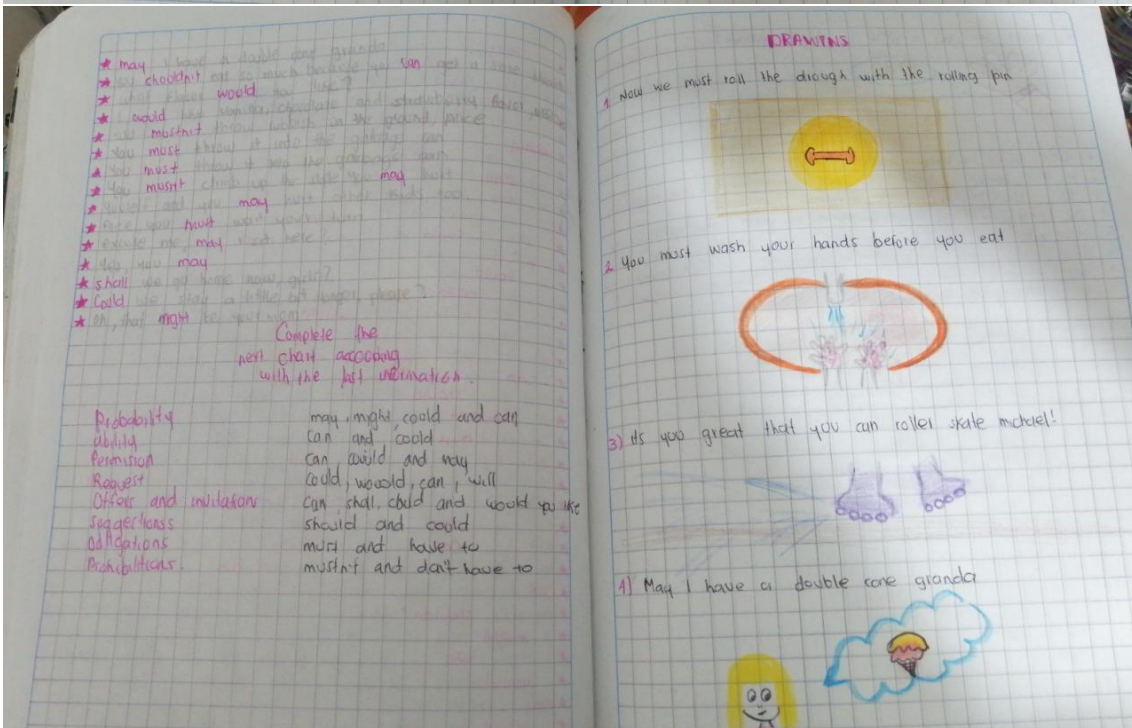 ★ may I have a double cone granda
★ chouldn't eat so much because you can get a
★ what flavor would you like?
★ I would like chocolate and
★ mustn't throw in the ground
★ You must throw it into the garbage can
★ You must throw it into the garbage can
★ You musnt climb up the you may hurt
★ and you may hurt other kids too
★ you must wait your turn
★ excuse me, may I sit here?
★ Yes, you may
★ shall we go home now girls?
★ Could we stay a little bit longer please?
★ Oh, that might be your mom
Complete the
next chart according
with the last information.
Probability may, might, coold and can
ability can and coold
Permision can could and may
Request coold, woould, can, will
Offers and invitation can shall, could and would you like
suggestionss should and coold
obligations must and have to
Prohibitions. mustn't and don't have to
DRAWINS
1. Now we must roll the drough with the rolling pin
2. You must wash your hands before you eat
3) its you great that you can roller skate michael!
4) May I have a double cone granda